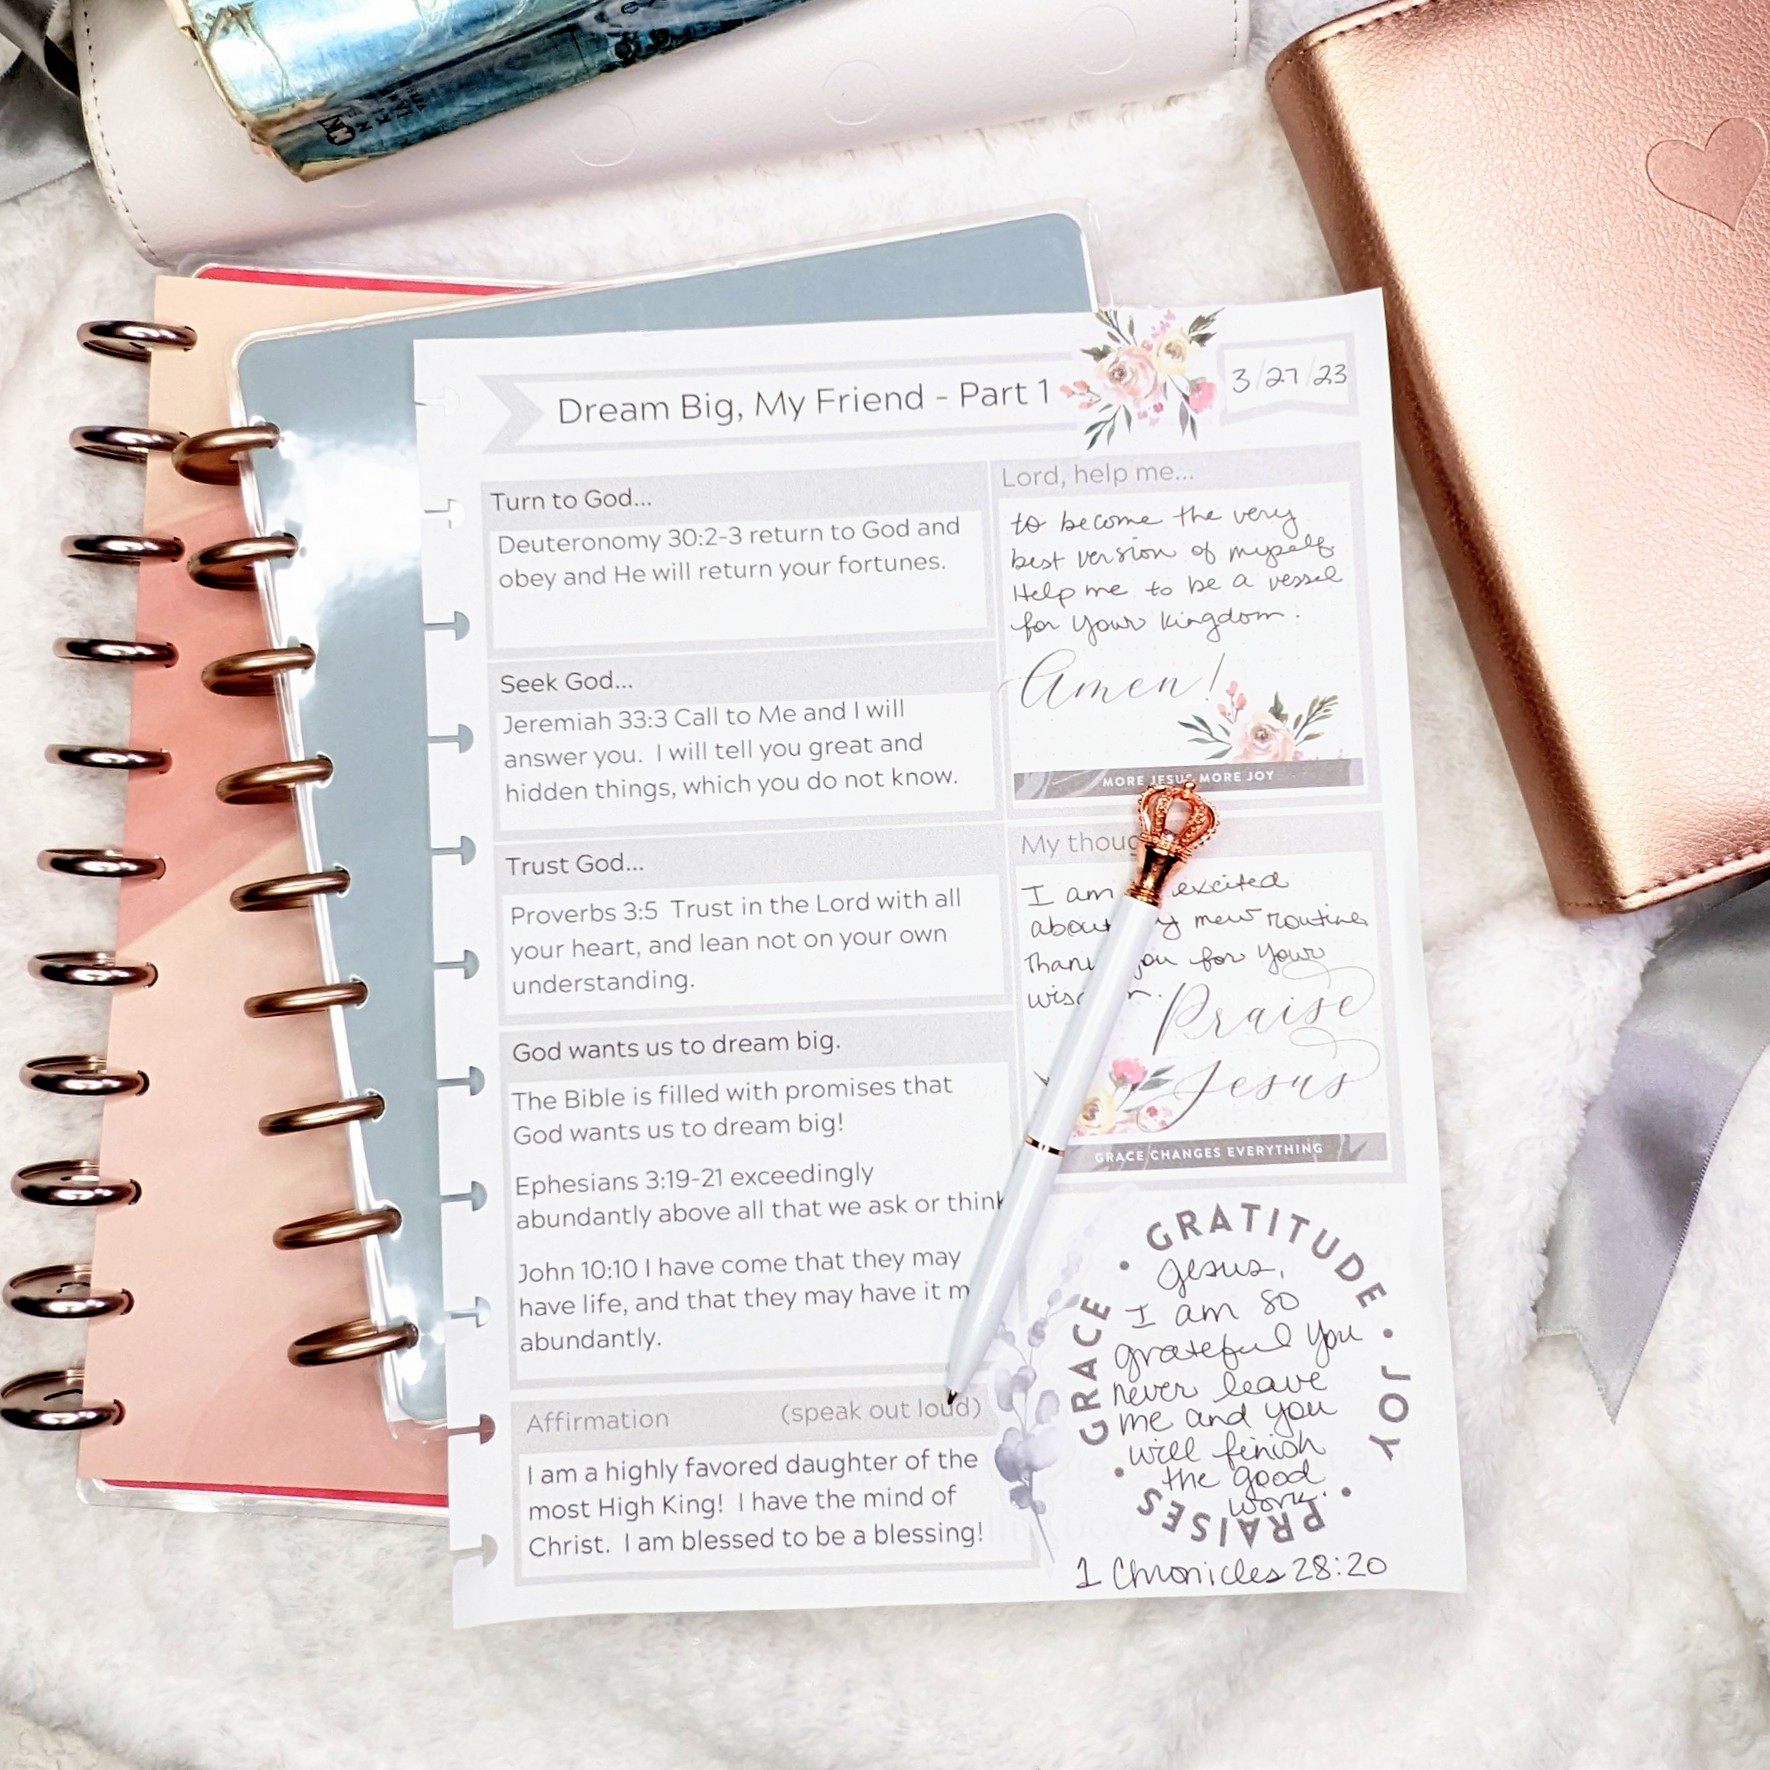 Dream Big, My Friend - Part 1
3/27/23
Turn to God...
Deuteronomy 30:2-3 return to God and
obey and He will return your fortunes.
Seek God...
Jeremiah 33:3 Call to Me and I will
answer you. I will tell you great and
hidden things, which you do not know.
Trust God...
Proverbs 3:5 Trust in the Lord with all
your heart, and lean not on your own
understanding.
God wants us to dream big.
The Bible is filled with promises that
God wants us to dream big!
Ephesians 3:19-21 exceedingly
abundantly above all that we ask or think
John 10:10 I have come that they may
have life, and that they may have it
abundantly.
Affirmation (speak out loud)
I am a highly favored daughter of the
most High King! I have the mind of
Christ. I am blessed to be a blessing!
Lord, help me...
to become the very
best version of myself.
Help me to be a vessel
for Your kingdom.
Amen!
MORE JESUS MORE JOY
My
I am excited
about new routine
you for Your
Praise
Jesus
GRACE CHANGES EVERYTHING
GRACE • GRATITUDE • JOY • PRAISES •
Jesus,
I am so
grateful You
never leave
me and you
will finish
the good
work.
1 Chronicles 28:20